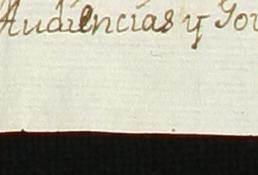 Audiencias y Gov